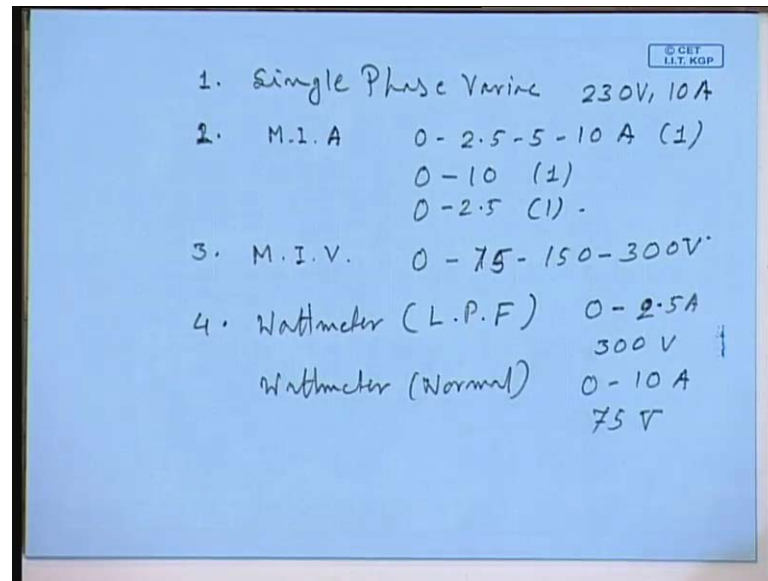 © CET
I.I.T. KGP
1. Single Phase Variac 230V, 10A
2. M.I.A 0 - 2.5 - 5 - 10 A (1)
0 - 10 (1)
0 - 2.5 (1).
3. M.I.V. 0 - 75 - 150 - 300V
4. Wattmeter (L.P.F) 0 - 2.5A
300 V
Wattmeter (Normal) 0 - 10 A
75 V